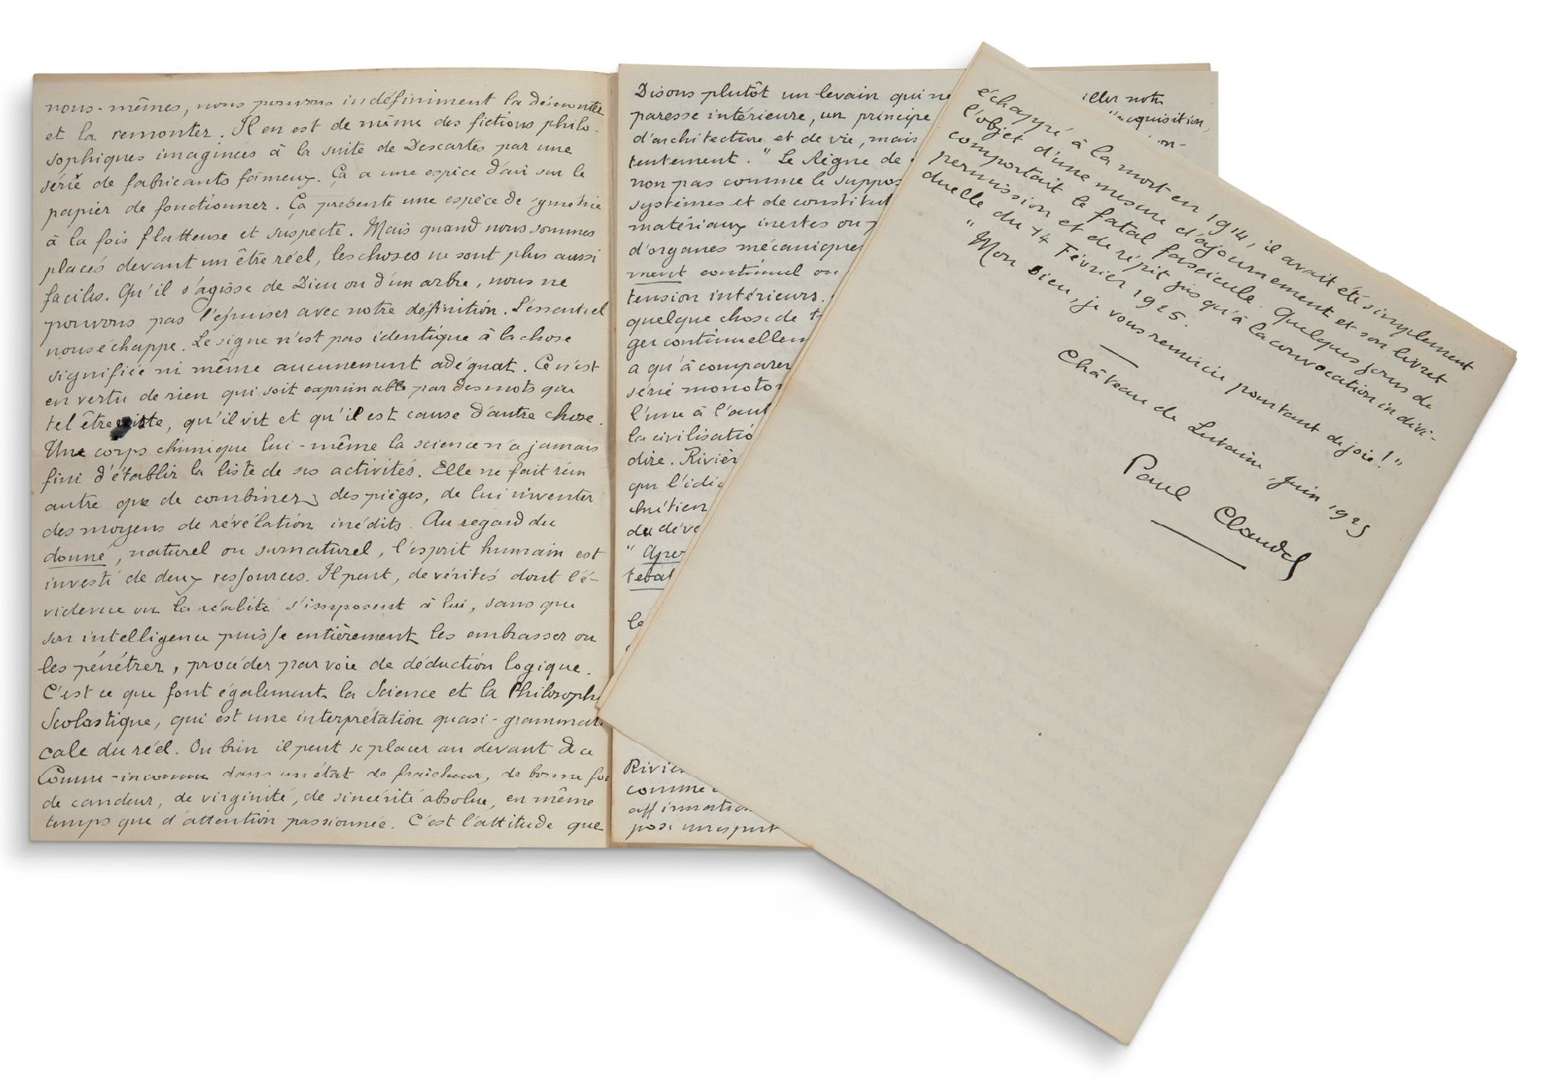 nous-mêmes, nous pouvons indéfiniment la démonter
et la remonter. Il en est de même des fictions philo-
sophiques imaginées à la suite de Descartes par une
série de fabricants fameux. Ça a une espèce d'air sur le
papier de fonctionner. Ça présente une espèce de symétrie
à la fois flatteuse et suspecte. Mais quand nous sommes
placés devant un être réel, les choses ne sont plus aussi
faciles. Qu'il s'agisse de Dieu ou d'un arbre, nous ne
pouvons pas l'épuiser avec notre définition. L'essentiel
nous échappe. Le signe n'est pas identique à la chose
signifiée ni même aucunement adéquat. Ce n'est
en vertu de rien qui soit exprimable par des mots que
tel être existe, qu'il vit et qu'il est cause d'autre chose.
Une corps chimique lui-même la science n'a jamais
fini d'établir la liste de ses activités. Elle ne fait rien
autre que de combiner des pièges, de lui inventer
des moyens de révélation inédits. Au regard du
donné, naturel ou surnaturel, l'esprit humain est
investi de deux ressources. Il peut, de vérités dont l'é-
vidence ou la réalité s'imposent à lui, sans que
son intelligence puisse entièrement les embrasser ou
les pénétrer, procéder par voie de déduction logique.
C'est ce que font également la Science et la Philosophie
Scolastique, qui est une interprétation quasi-grammati-
cale du réel. Ou bien il peut se placer au devant de ce
Connu-inconnu dans un état de fraîcheur, de bonne foi
de candeur, de virginité, de sincérité absolue, en même
temps que d'attention passionnée. C'est l'attitude que
Disons plutôt un levain qui ne
paresse intérieure, un principe
d'architecture et de vie, mais
tentement." Le Règne de
non pas comme le suppos
systèmes et de constitut
matériaux inertes ou
d'organes mécaniques
ment continuel ou
tension intérieurs.
quelque chose de t
ger continuellem
a qu'à comparer
série monoto
l'une à l'aut
la civilisatio
dire. Riviè
qu l'idé
chrétien
du déve
le
Riviè
comme
affirmation
pose un esprit
iller notre
acquisition,
échappé à la mort en 1914, il avait été simplement
l'objet d'une mesure d'ajournement et son livret
comportait le fatal fascicule. Quelques jours de
permission et de répit jusqu'à la convocation indivi-
duelle du 14 Février 1925.
"Mon Dieu, je vous remercie pourtant de joie!"
Château de Lutaine, Juin 1925
Paul Claudel